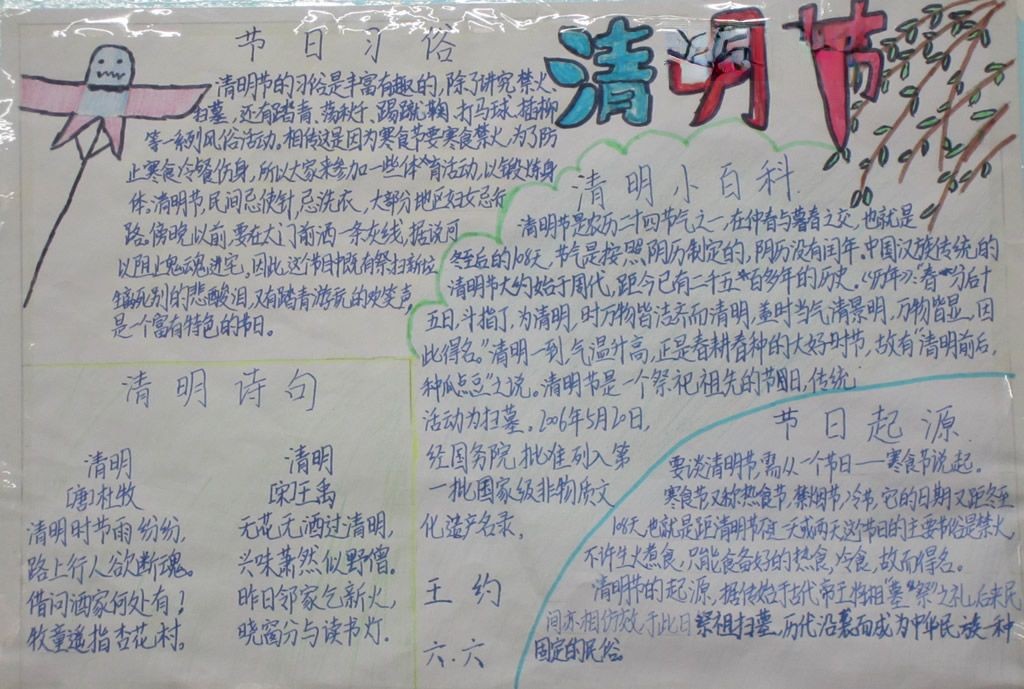 清明节
节日习俗
清明节的习俗是丰富有趣的,除了讲究禁火、
扫墓,还有踏青、荡秋千、踢蹴鞠、打马球、插柳
等一系列风俗活动。相传这是因为寒食节要寒食禁火,为了防
止寒食冷餐伤身,所以大家来参加一些体育活动,以锻炼身
体。清明节,民间忌使针,忌洗衣,大部分地区妇女忌行
路。傍晚以前,要在大门前洒一条灰线,据说可
以阻止鬼魂进宅。因此,这个节日中既有祭扫新坟
生离死别的悲酸泪,又有踏青游玩的欢笑声,
是一个富有特色的节日。
清明小百科
清明节是农历二十四节气之一,在仲春与暮春之交,也就是
冬至后的108天,节气是按照阴历制定的,阴历没有闰年。中国汉族传统的
清明节大约始于周代,距今已有二千五百多年的历史。《历书》:"春分后十
五日,斗指丁,为清明,时万物皆洁齐而清明,盖时当气清景明,万物皆显,因
此得名。"清明一到,气温升高,正是春耕春种的大好时节,故有"清明前后,
种瓜点豆"之说。清明节是一个祭祀祖先的节日,传统
活动为扫墓。2006年5月20日,
经国务院批准列入第
一批国家级非物质文
化遗产名录。
清明诗句
清明
[唐]杜牧
清明时节雨纷纷,
路上行人欲断魂。
借问酒家何处有!
牧童遥指杏花村。
清明
[宋]王禹
无花无酒过清明,
兴味萧然似野僧。
昨日邻家乞新火,
晓窗分与读书灯.
王约
六.六
节日起源
要谈清明节,需从一个节日——寒食节说起。
寒食节又称热食节,禁烟节,冷节,它的日期又距冬至
108天,也就是距清明节不过一天或两天这个节日的主要节俗是禁火,
不许生火煮食,只能食备好的热食,冷食,故而得名。
清明节的起源,据传始于古代帝王将相"墓祭"之礼,后来民
间亦相仿效于此日祭祖扫墓,历代沿袭而成为中华民族一种
固定的民俗。